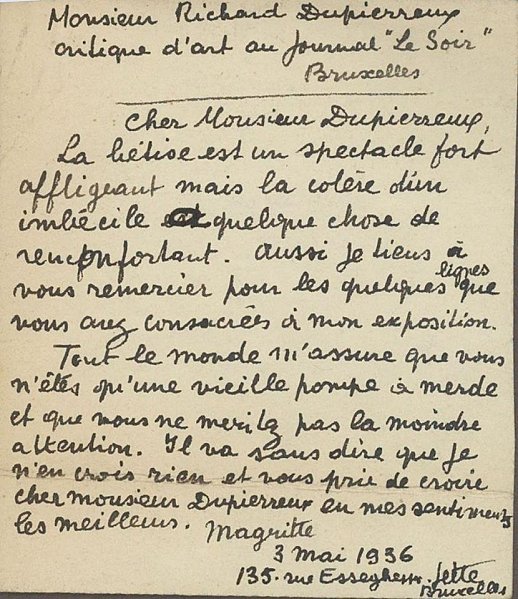 Monsieur Richard Dupierreux
critique d'art au journal "Le Soir"
Bruxelles
Cher Monsieur Dupierreux,
La bêtise est un spectacle fort
affligeant mais la colère d'un
imbécile a quelque chose de
réconfortant. Aussi je tiens à
vous remercier pour les quelques lignes que
vous avez consacrées à mon exposition.
Tout le monde m'assure que vous
n'êtes qu'une vieille pompe à merde
et que vous ne méritez pas la moindre
attention. Il va sans dire que je
n'en crois rien et vous prie de croire
cher monsieur Dupierreux en mes sentiments
les meilleurs. Magritte
3 Mai 1936
135. rue Esseghem. Jette
Bruxelles